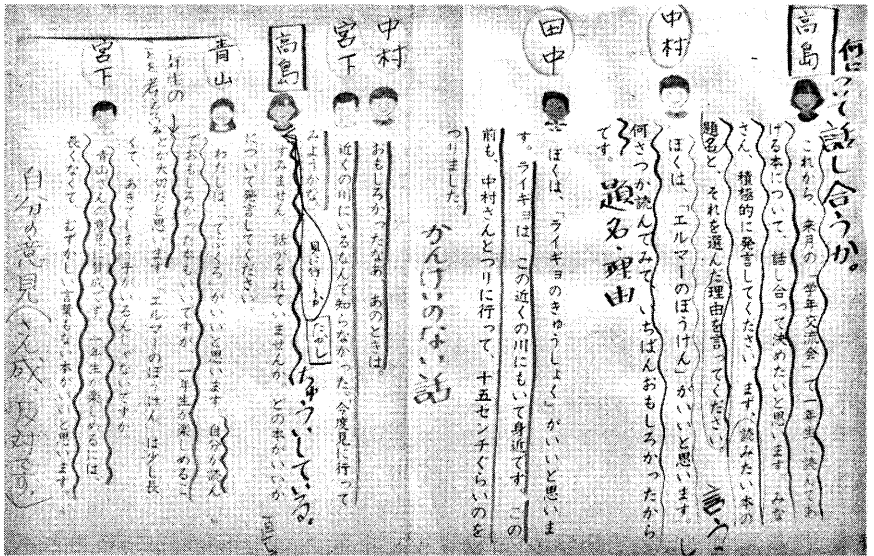 何について話し合うか。
高島
これから、来月の「学年交流会」で一年生に読んであ
げる本について、話し合って決めたいと思います。みな
さん、積極的に発言してください。まず、読みたい本の
題名と、それを選んだ理由を言ってください。
言う
中村
ぼくは、「エルマーのぼうけん」がいいと思います。
何さつか読んでみて、いちばんおもしろかったから
です。
題名・理由
田中
ぼくは、「ライギョのきゅうしょく」がいいと思いま
す。ライギョは、この近くの川にもいて身近です。この
前も、中村さんとつりに行って、十五センチぐらいのを
つりました。
かんけいのない話
中村
おもしろかったなあ、あのときは。
宮下
近くの川にいるなんて知らなかった。今度見に行って
みようかな。
見に行こうか
高島
すみません、話がそれていませんか。どの本がいいか
について発言してください。
ちゅういしている。
青山
わたしは、「てぶくろ」がいいと思います。自分が読ん
でおもしろかった本もいいですが、一年生が楽しめるこ
とが大切だと思います。「エルマーのぼうけん」は少し長
くて、あきてしまう子がいるんじゃないですか。
宮下
青山さんの意見に賛成です。一年生が楽しめるには、
長くなくて、むずかしい言葉もない本がいいと思います。
自分の意見(さん成、反対)